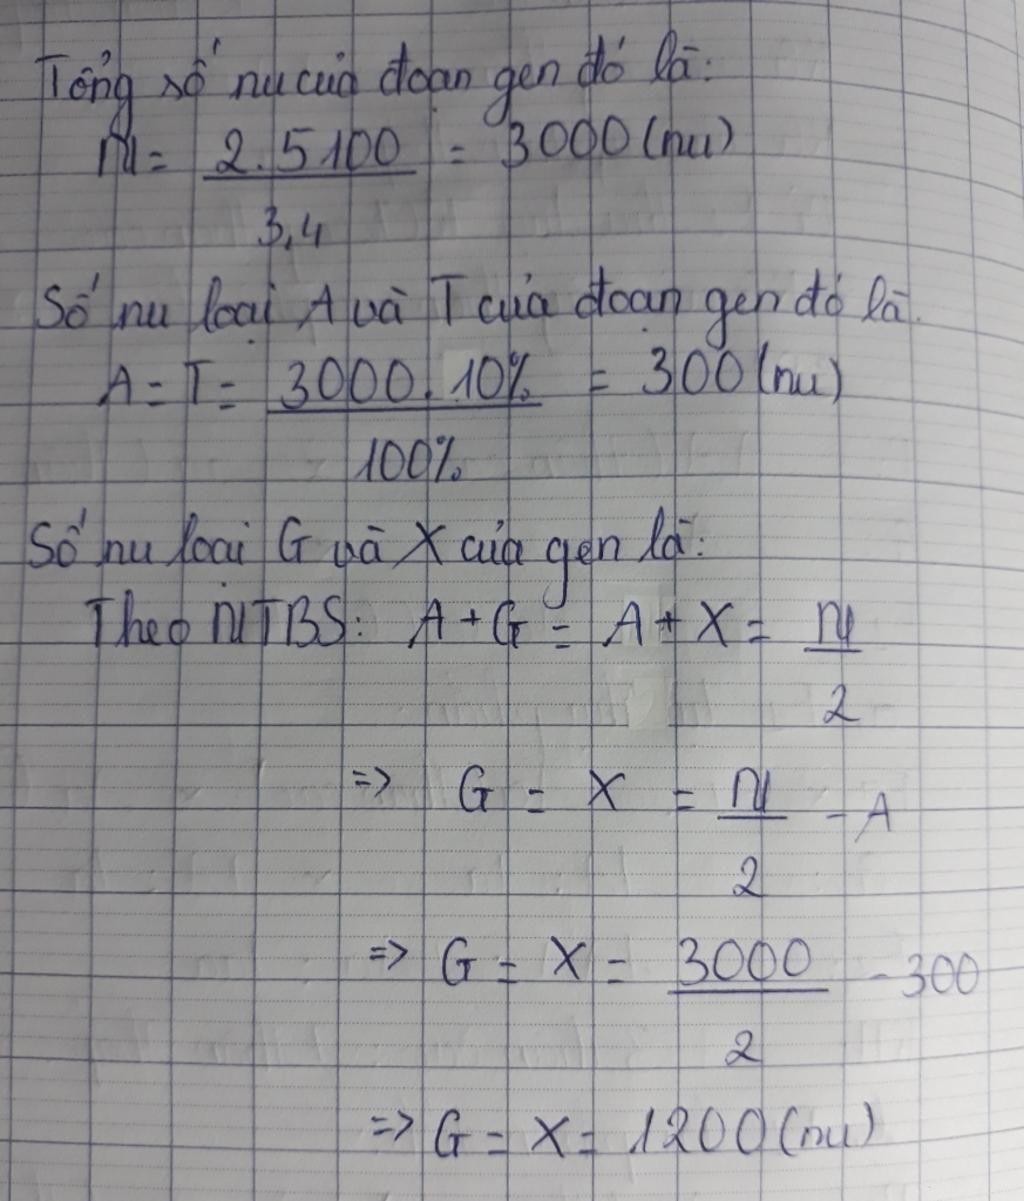 Tổng số nu của đoạn gen đó là:
N = 2.5100 / 3,4 = 3000 (nu)
Số nu loại A và T của đoạn gen đó là.
A = T = 3000. 10% / 100% = 300 (nu)
Số nu loại G và X của gen là:
Theo NTBS: A + G = A + X = N / 2
=> G = X = N / 2 - A
=> G = X = 3000 / 2 - 300
=> G = X = 1200 (nu)